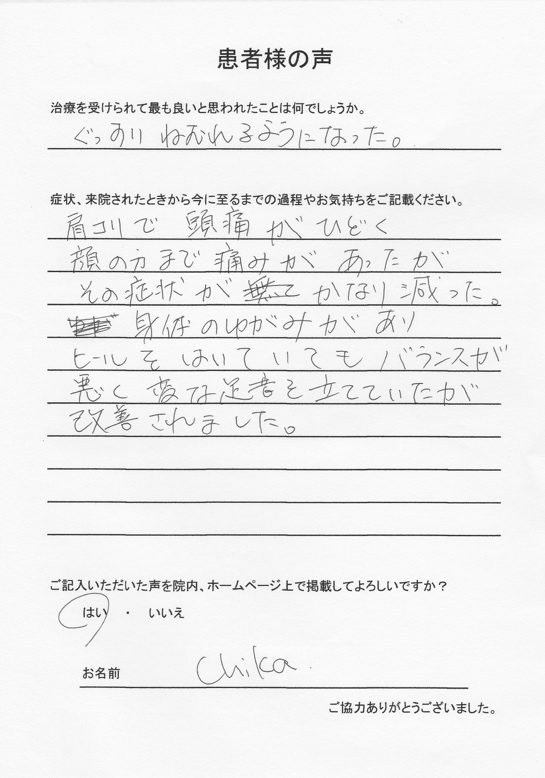 患者様の声
治療を受けられて最も良いと思われたことは何でしょうか。
ぐっすり ねむれるようになった。
症状、来院されたときから今に至るまでの過程やお気持ちをご記載ください。
肩コリで 頭痛がひどく
顔の方まで痛みが あったが
その症状が かなり減った。
身体のゆがみがあり
ヒールをはいていてもバランスが
悪く 変な足音を立てていたが
改善されました。
ご記入いただいた声を院内、ホームページ上で掲載してよろしいですか？
はい ・ いいえ
お名前 Chika
ご協力ありがとうございました。